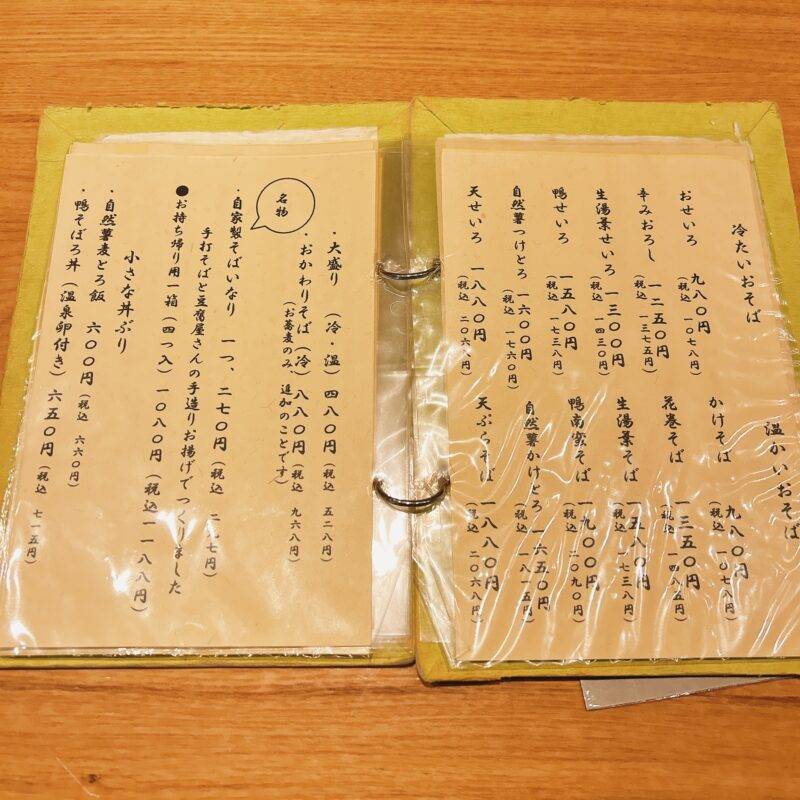 冷たいおそば
おせいろ 九八〇円
（税込 一〇七八円）
辛みおろし 一二五〇円
（税込 一三七五円）
生湯葉せいろ 一三〇〇円
（税込 一四三〇円）
鴨せいろ 一五八〇円
（税込 一七三八円）
自然薯つけとろ 一六〇〇円
（税込 一七六〇円）
天せいろ 一八八〇円
（税込 二〇六八円）
温かいおそば
かけそば 九八〇円
（税込 一〇七八円）
花巻そば 一三五〇円
（税込 一四八五円）
生湯葉そば 一五八〇円
（税込 一七三八円）
鴨南蛮そば 一九〇〇円
（税込 二〇九〇円）
自然薯かけとろ 一六五〇円
（税込 一八一五円）
天ぷらそば 一八八〇円
（税込 二〇六八円）
・大盛り （冷・温） 四八〇円（税込 五二八円）
・おかわりそば（冷） 八八〇円（税込 九六八円）
（お蕎麦のみ、追加のことです）
名物
・自家製そばいなり 一つ、二七〇円（税込 二九七円）
手打そばと豆腐屋さんの手造りお揚げでつくりました
●お持ち帰り用一箱（四つ入）一〇八〇円（税込一一八八円）
小さな丼ぶり
・自然薯麦とろ飯 六〇〇円（税込 六六〇円）
・鴨そぼろ丼（温泉卵付き）六五〇円（税込 七一五円）